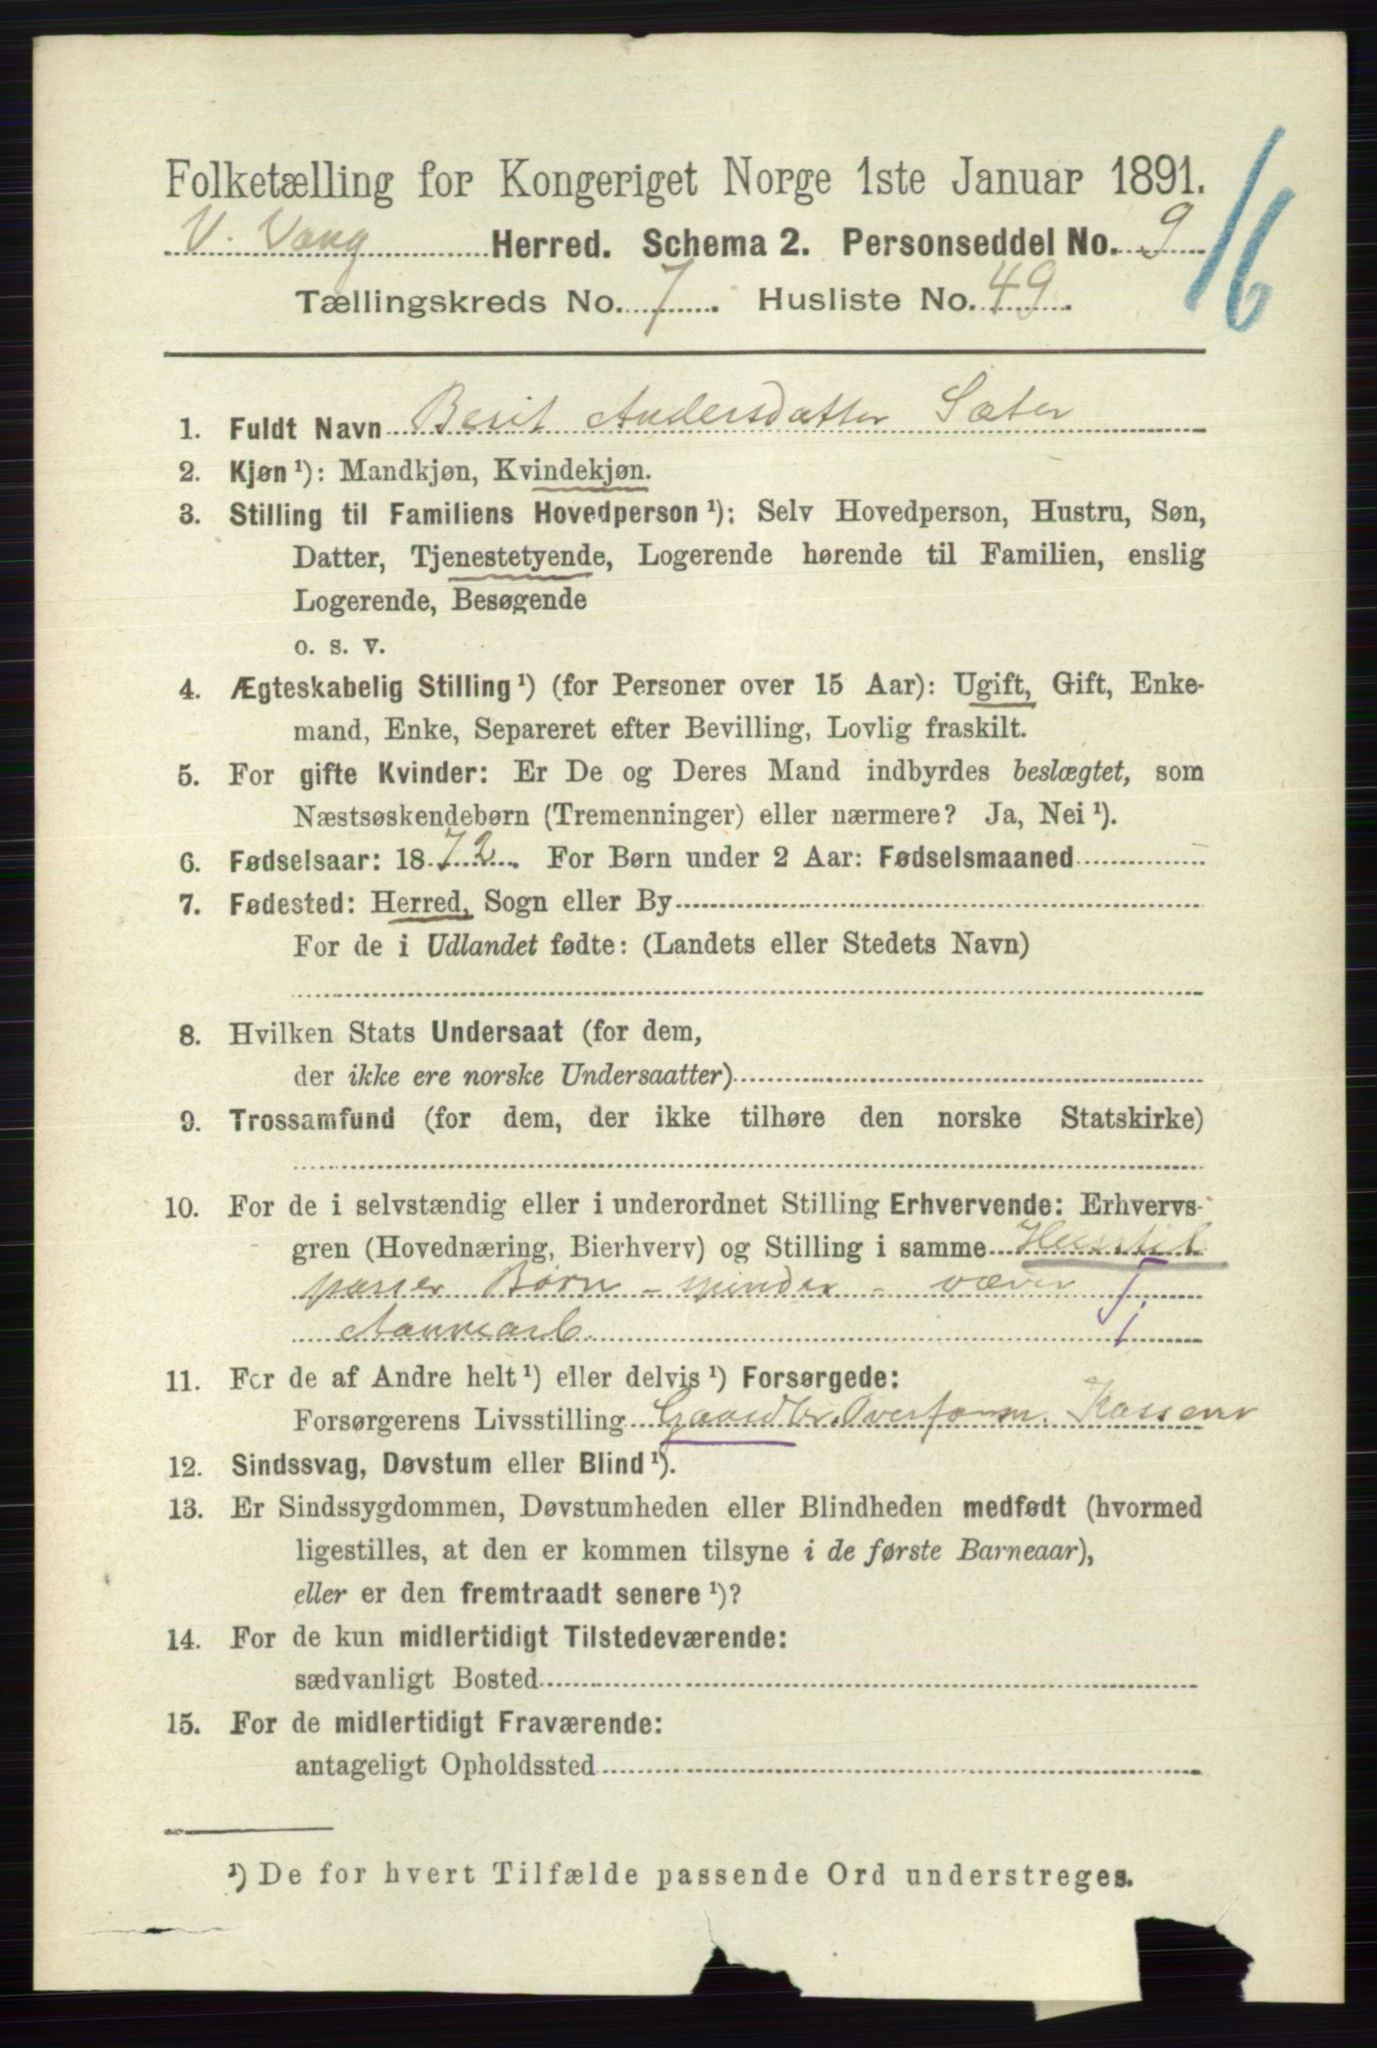 Folketælling for Kongeriget Norge 1ste Januar 1891.
16
V. Vang Herred. Schema 2. Personseddel No. 9
Tællingskreds No. 7. Husliste No. 49.
1. Fuldt Navn Berit Andersdatter Sæter
2. Kjøn ¹): Mandkjøn, Kvindekjøn.
3. Stilling til Familiens Hovedperson ¹): Selv Hovedperson, Hustru, Søn,
Datter, Tjenestetyende, Logerende hørende til Familien, enslig
Logerende, Besøgende
o. s. v.
4. Ægteskabelig Stilling ¹) (for Personer over 15 Aar): Ugift, Gift, Enke-
mand, Enke, Separeret efter Bevilling, Lovlig fraskilt.
5. For gifte Kvinder: Er De og Deres Mand indbyrdes beslægtet, som
Næstsøskendebørn (Tremenninger) eller nærmere? Ja, Nei ¹).
6. Fødselsaar: 1872. For Børn under 2 Aar: Fødselsmaaned
7. Fødested: Herred, Sogn eller By
For de i Udlandet fødte: (Landets eller Stedets Navn)
8. Hvilken Stats Undersaat (for dem,
der ikke ere norske Undersaatter)
9. Trossamfund (for dem, der ikke tilhøre den norske Statskirke)
10. For de i selvstændig eller i underordnet Stilling Erhvervende: Erhvervs-
gren (Hovednæring, Bierhverv) og Stilling i samme Husstel
passer Børn - spinder - væver T.
11. For de af Andre helt ¹) eller delvis ¹) Forsørgede:
Forsørgerens Livsstilling Gaardbr. Overform. Kasserer
12. Sindssvag, Døvstum eller Blind ¹).
13. Er Sindssygdommen, Døvstumheden eller Blindheden medfødt (hvormed
ligestilles, at den er kommen tilsyne i de første Barneaar),
eller er den fremtraadt senere ¹)?
14. For de kun midlertidigt Tilstedeværende:
sædvanligt Bosted
15. For de midlertidigt Fraværende:
antageligt Opholdssted
¹) De for hvert Tilfælde passende Ord understreges.